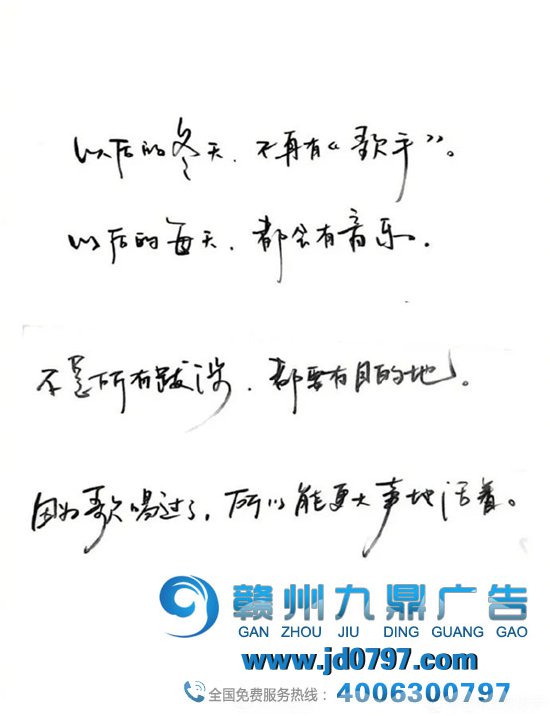 以后的冬天，不再有《歌手》。
以后的每天，都会有音乐。
不是所有跋涉，都要有目的地。
因为歌唱过了，所以能更大声地活着。
赣州九鼎广告
GAN ZHOU JIU DING GUANG GAO
www.jd0797.com
全国免费服务热线：4006300797